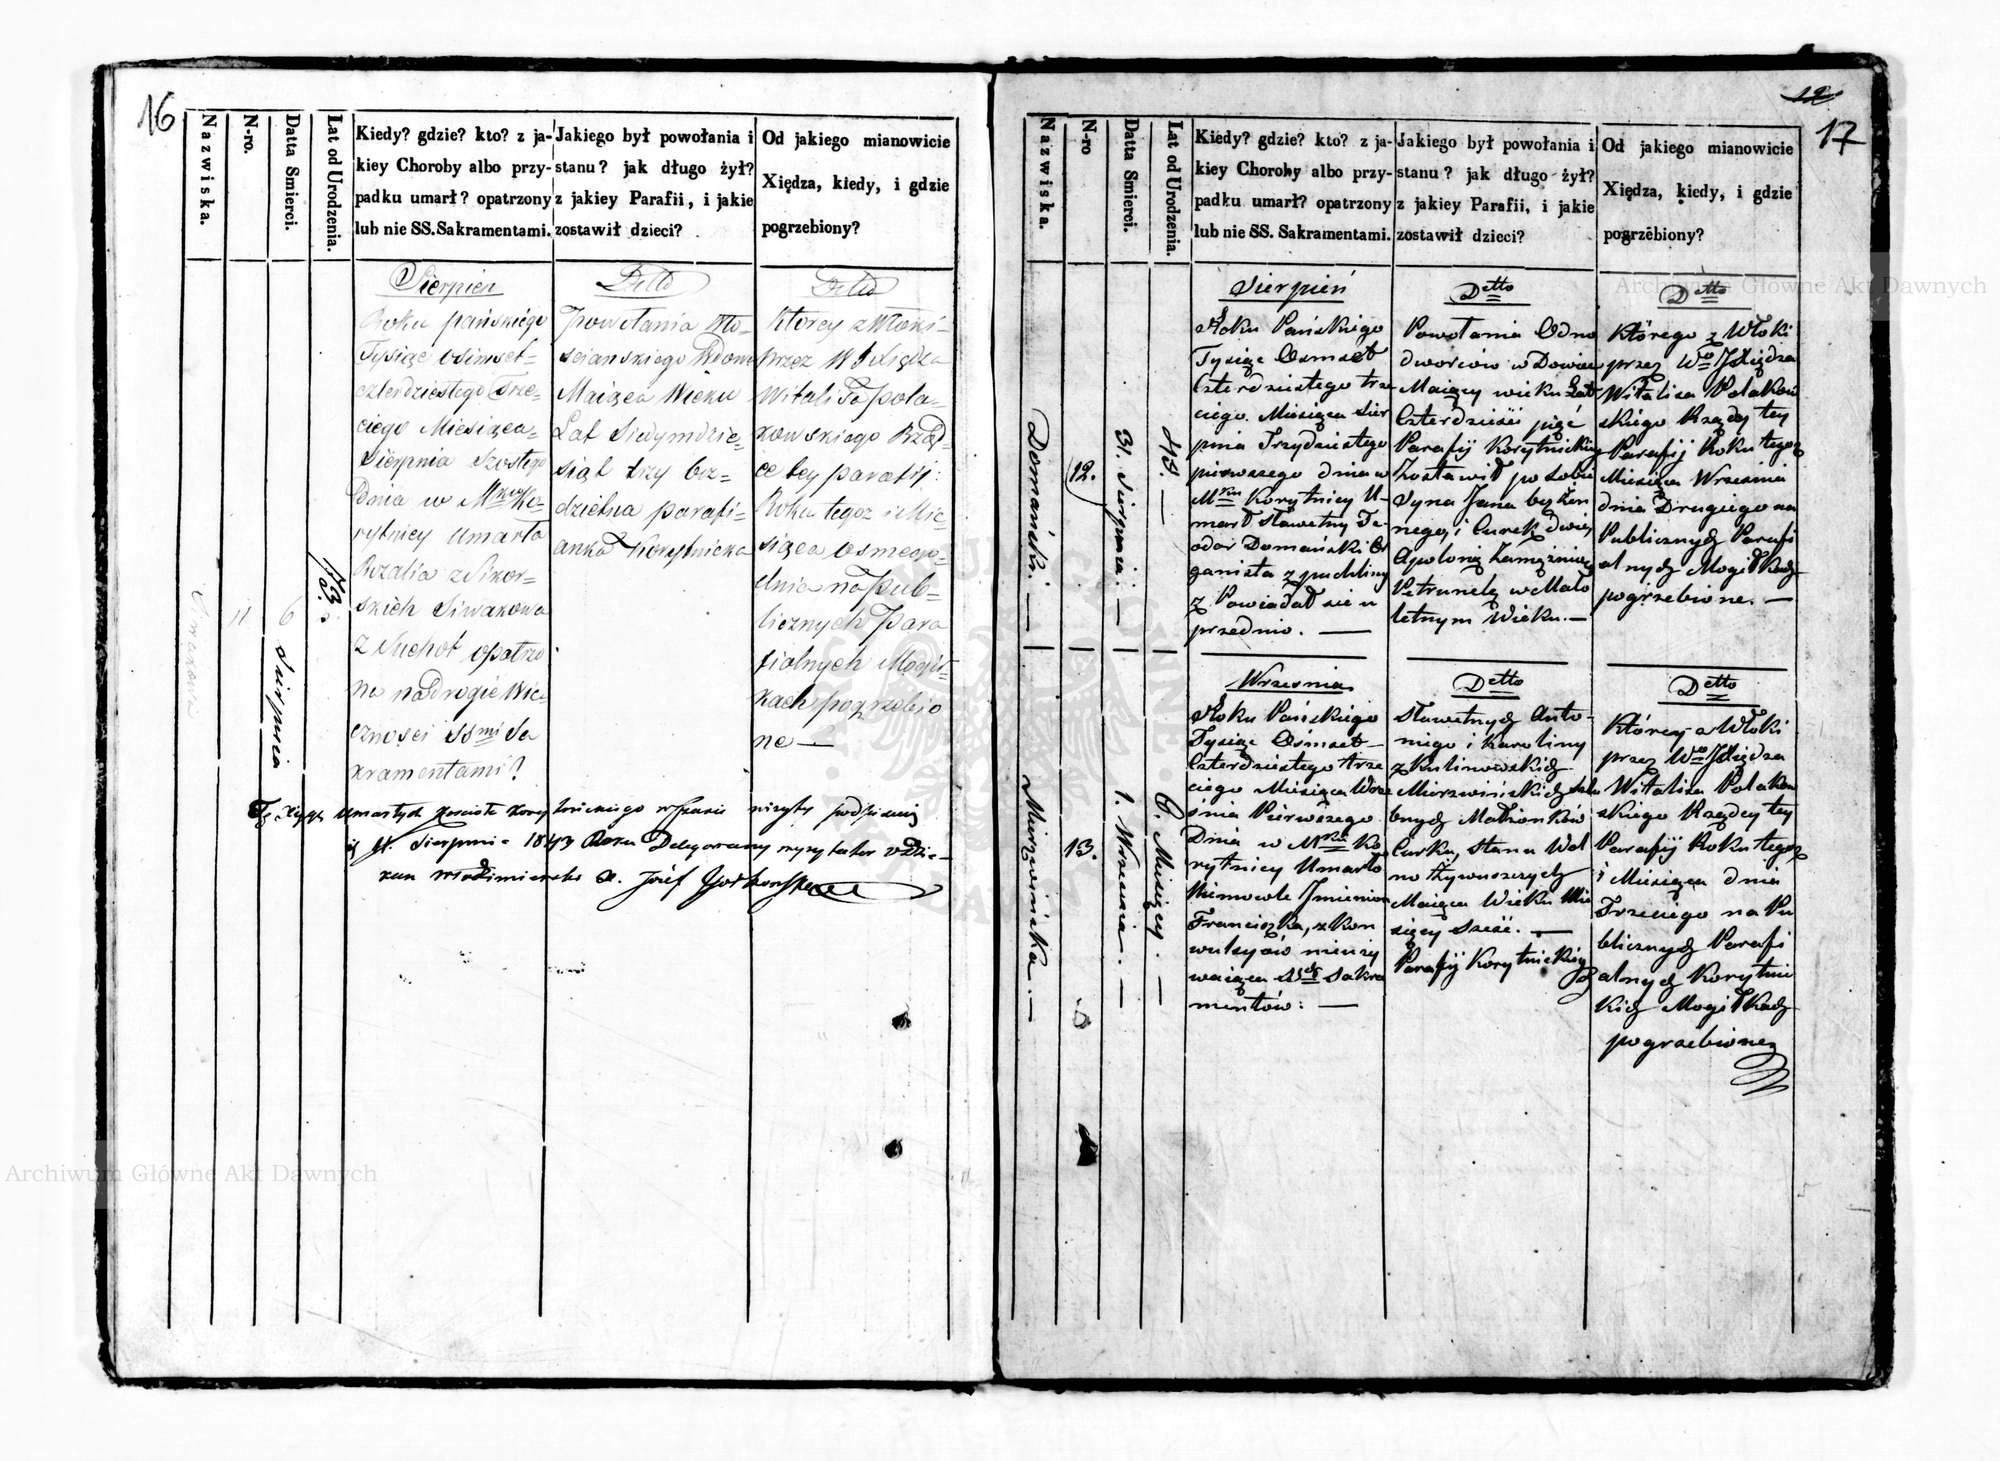 16
Nazwiska.
N-ro.
Datta Smierci.
Lat od Urodzenia.
Kiedy? gdzie? kto? z ja-
kiey Choroby albo przy-
padku umarł? opatrzony
lub nie SS. Sakramentami.
Jakiego był powołania i
stanu? jak długo żył?
z jakiey Parafii, i jakie
zostawił dzieci?
Od jakiego mianowicie
Xiędza, kiedy, i gdzie
pogrzebiony?
Siwakowa
11
6 Sierpnia
73.
Sierpień
Roku pańskiego
Tysiąc osimset-
czterdziestego Trze-
ciego Miesiąca-
Sierpnia Szostego
Dnia w Mku Ko-
rytnicy Umarła
Rozalia z Sikor-
skich Siwakowa
z Suchot opatrzo
na na drogie Wie-
czności SSmi Sa
kramentami?
Detto
powołania Wło-
sciańskiego Wdowa
Maiąca Wieku
Lat Siedymdzie-
siąt trzy bez-
dzietna parafi-
anka Korytnicka
Detto
Ktorey zwłoki-
przez W J Xiędza
Witalisa pola-
kowskiego Rząd-
ce tey parafij:
Roku tegoz i Mie-
siąca osmego-
dnia na pub-
licznych para
fialnych Mogił-
kach pogrzebio
ne —
Tę Xięgę Umarłych Kościoła Korytnickiego w czasie wizyty podpisuię
Sierpnia 1843 Roku Delegowany wizytator Dzie-
kan Włodzimierski X. Józef
12
17
Nazwiska.
N-ro
Datta Smierci.
Lat od Urodzenia.
Kiedy? gdzie? kto? z ja-
kiey Choroby albo przy-
padku umarł? opatrzony
lub nie SS. Sakramentami.
Jakiego był powołania i
stanu? jak długo żył?
z jakiey Parafii, i jakie
zostawił dzieci?
Od jakiego mianowicie
Xiędza, kiedy, i gdzie
pogrzebiony?
Domański. —
12.
31. Sierpnia. —
45. —
Sierpień
Roku Pańskiego
Tysiąc Osmset
Czterdziestego trze
ciego. Miesiąca Sier
pnia Trzydziestego
pierwszego dnia w
Mku Korytnicy U-
marł Sławetny Te-
odor Domański Or
ganista z puchliny
z Powiadał się u
przednio. —
Detto
Powołania Odno
dworców w Dowiec
Maiący wieku Lat
Czterdzieści pięć
Parafij Korytnickiey
Zostawił po sobie
Syna Jana bez żen
nego, i Curek dwie,
Apolonię Zamężnię,
Petrunelę w Mało
letnym Wieku. —
Detto
Którego z Włoki
przez Wo JXiędza
Witalisa Polakow
skiego Rządcę tey
Parafij Roku tegoz
Miesiąca Wrzesnia
dnia Drugiego na
Publicznych Parafi
alnych Mogiłkach
pogrzebione. —
Mierzwińska. —
13.
1. Wrzesnia. —
6. Miesięcy. —
Wrzesnia
Roku Pańskiego
Tysiąc Ośmset-
Czterdziestego trze
ciego Miesiąca Wrze
śnia Pierwszego
Dnia w Mku Ko
rytnicy Umarło
Niemowle Imieniem
Franciszka, z kon
wulsyów nieuży
waiąca SSch Sakra
mentów: —
Detto
Sławetnych Anto-
niego i Karoliny
z Kulinowskich
Mierzwińskich Szlu
bnych Małżonków
Curka, Stanu Wol
no żywnoszcych
Maiąca Wieku Mie
sięcy sześć. —
Parafij Korytnickiey
Detto
Którey z Włoki
przez Wo JXiędza
Witalisa Polakow
skiego Rządcy tey
Parafij Roku tegoz
i Miesiąca dnia
Trzeciego na Pu
blicznych Parafi
alnych Korytnic
kich Mogiłkach
pogrzebione
Archiwum Główne Akt Dawnych
Archiwum Główne Akt Dawnych